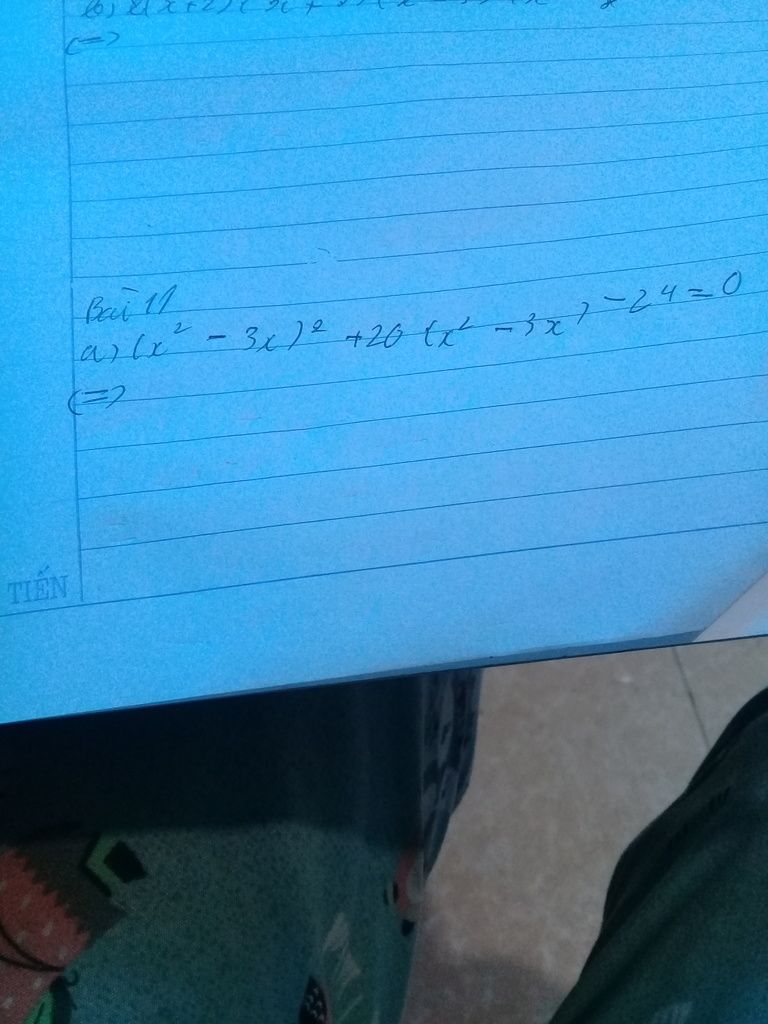 (=)
Bài 11
a) (x² - 3x)² + 20 (x² - 3x) - 24 = 0
(=)
TIẾN